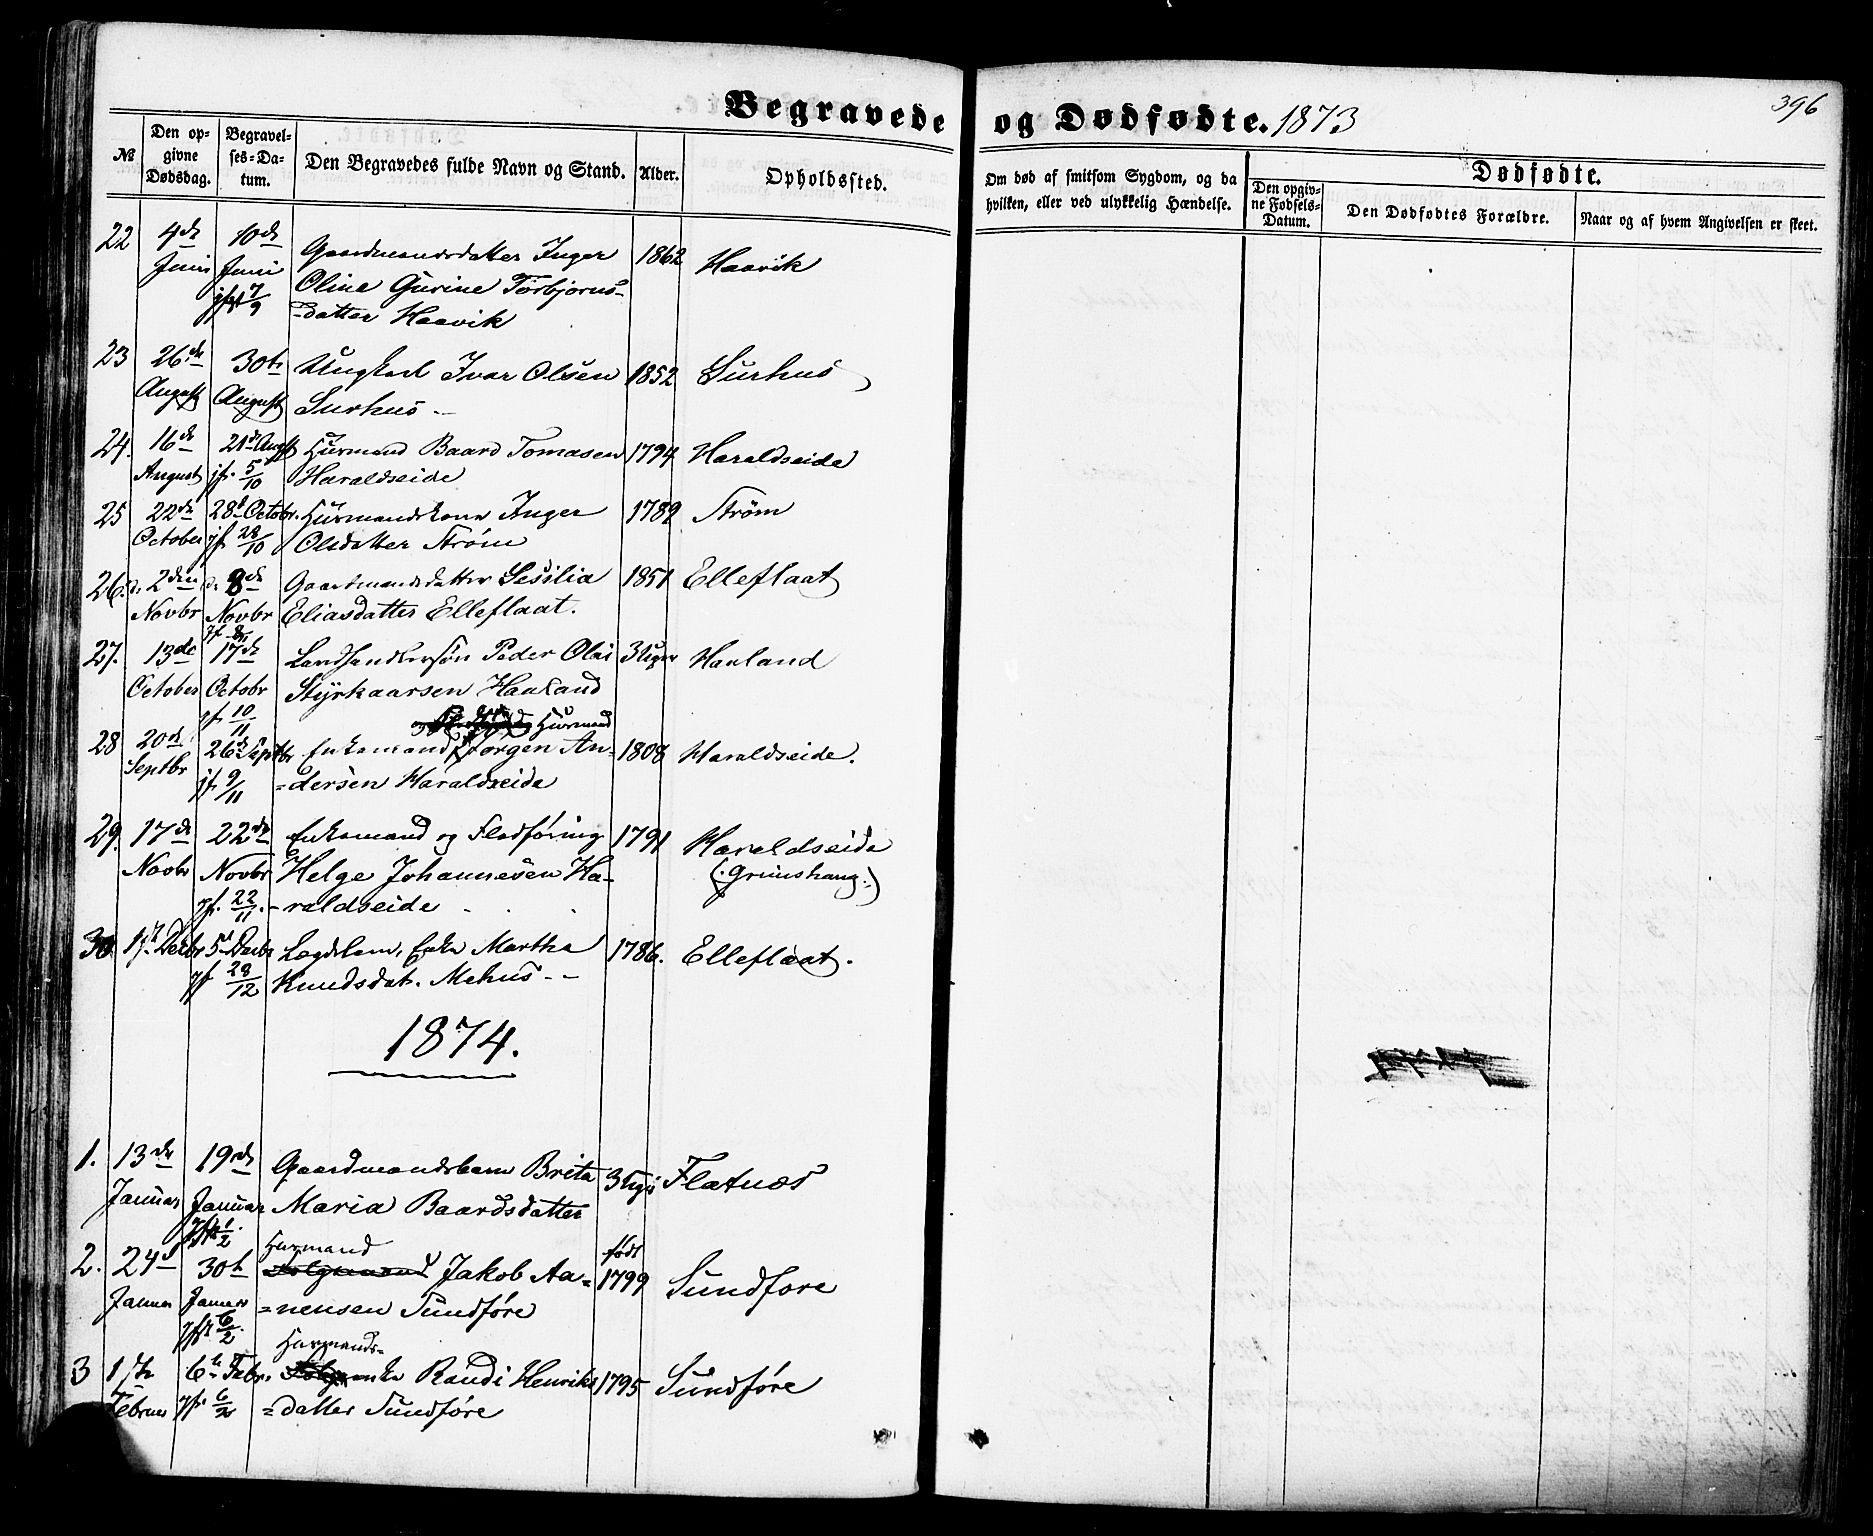 Begravede og Dødfødte. 1873
396
№
Den opgivne Dødsdag.
Begravelses-Datum.
Den Begravedes fulde Navn og Stand.
Alder.
Opholdssted.
Om død af smitsom Sygdom, og da hvilken, eller ved ulykkelig Hændelse.
Dødfødte.
Den opgivne Fødsels-Datum.
Den Dødfødtes Forældre.
Naar og af hvem Angivelsen er skeet.
22 4de 10de Gaardmandsdatter Inger 1862 Haavik
Juni Juni Oline Gurine Torbjorns-
7/9 -datter Haavik
23 26de 30te Ungkarl Ivar Olsen 1852 Surhus
August August Surhus
24. 16de 21de Augst Huusmand Baard Tomasen 1794 Haraldseide
August jf. 5/10 Haraldseide
25 22de 28de Octobr. Huusmandskone Inger 1789 Strøm
October jf 28/10 Olsdatter Strøm
26. d. 2den d. 8de Gaardmandsdatter Sesilia 1851 Elleflaat
Novbr Novbr Eliasdatter Elleflaat.
27. 13de 17de Landhandlersøn Peder Olai 3 Uger Haaland
October Octobr Styrkaarsen Haaland
jf. 10/11
og Huusmand
28 20de 26de Septbr Enkemand Jørgen An- 1808 Haraldseide.
Septbr jf. 9/11 -dersen Haraldseide
29. 17de 22de Enkemand og Fladføring 1791 Haraldseide
Novbr Novbr Helge Johannesen Ha- (:Grinshaug:)
jf. 22/11 -raldseide
30. 1ste Decbr 5te Decbr Lægdslem, Enke Martha 1786. Elleflaat.
jf 28/12 Knudsdat. Mehus
1874.
1. 13de 19de Gaardmandsbarn Brita 3 Uger Flatnæs
Januar Januar Maria Baardsdatter
jf 1/2
Huusmand født
2. 24de 30te Jakob Aa- 1799 Sundføre
Januar Januar =nensen Sundføre
jf 6/2
Huusmands-
3 1ste 6te Febr. enke Randi Henriks 1795 Sundføre
Februar jf. 6/2 =datter Sundføre